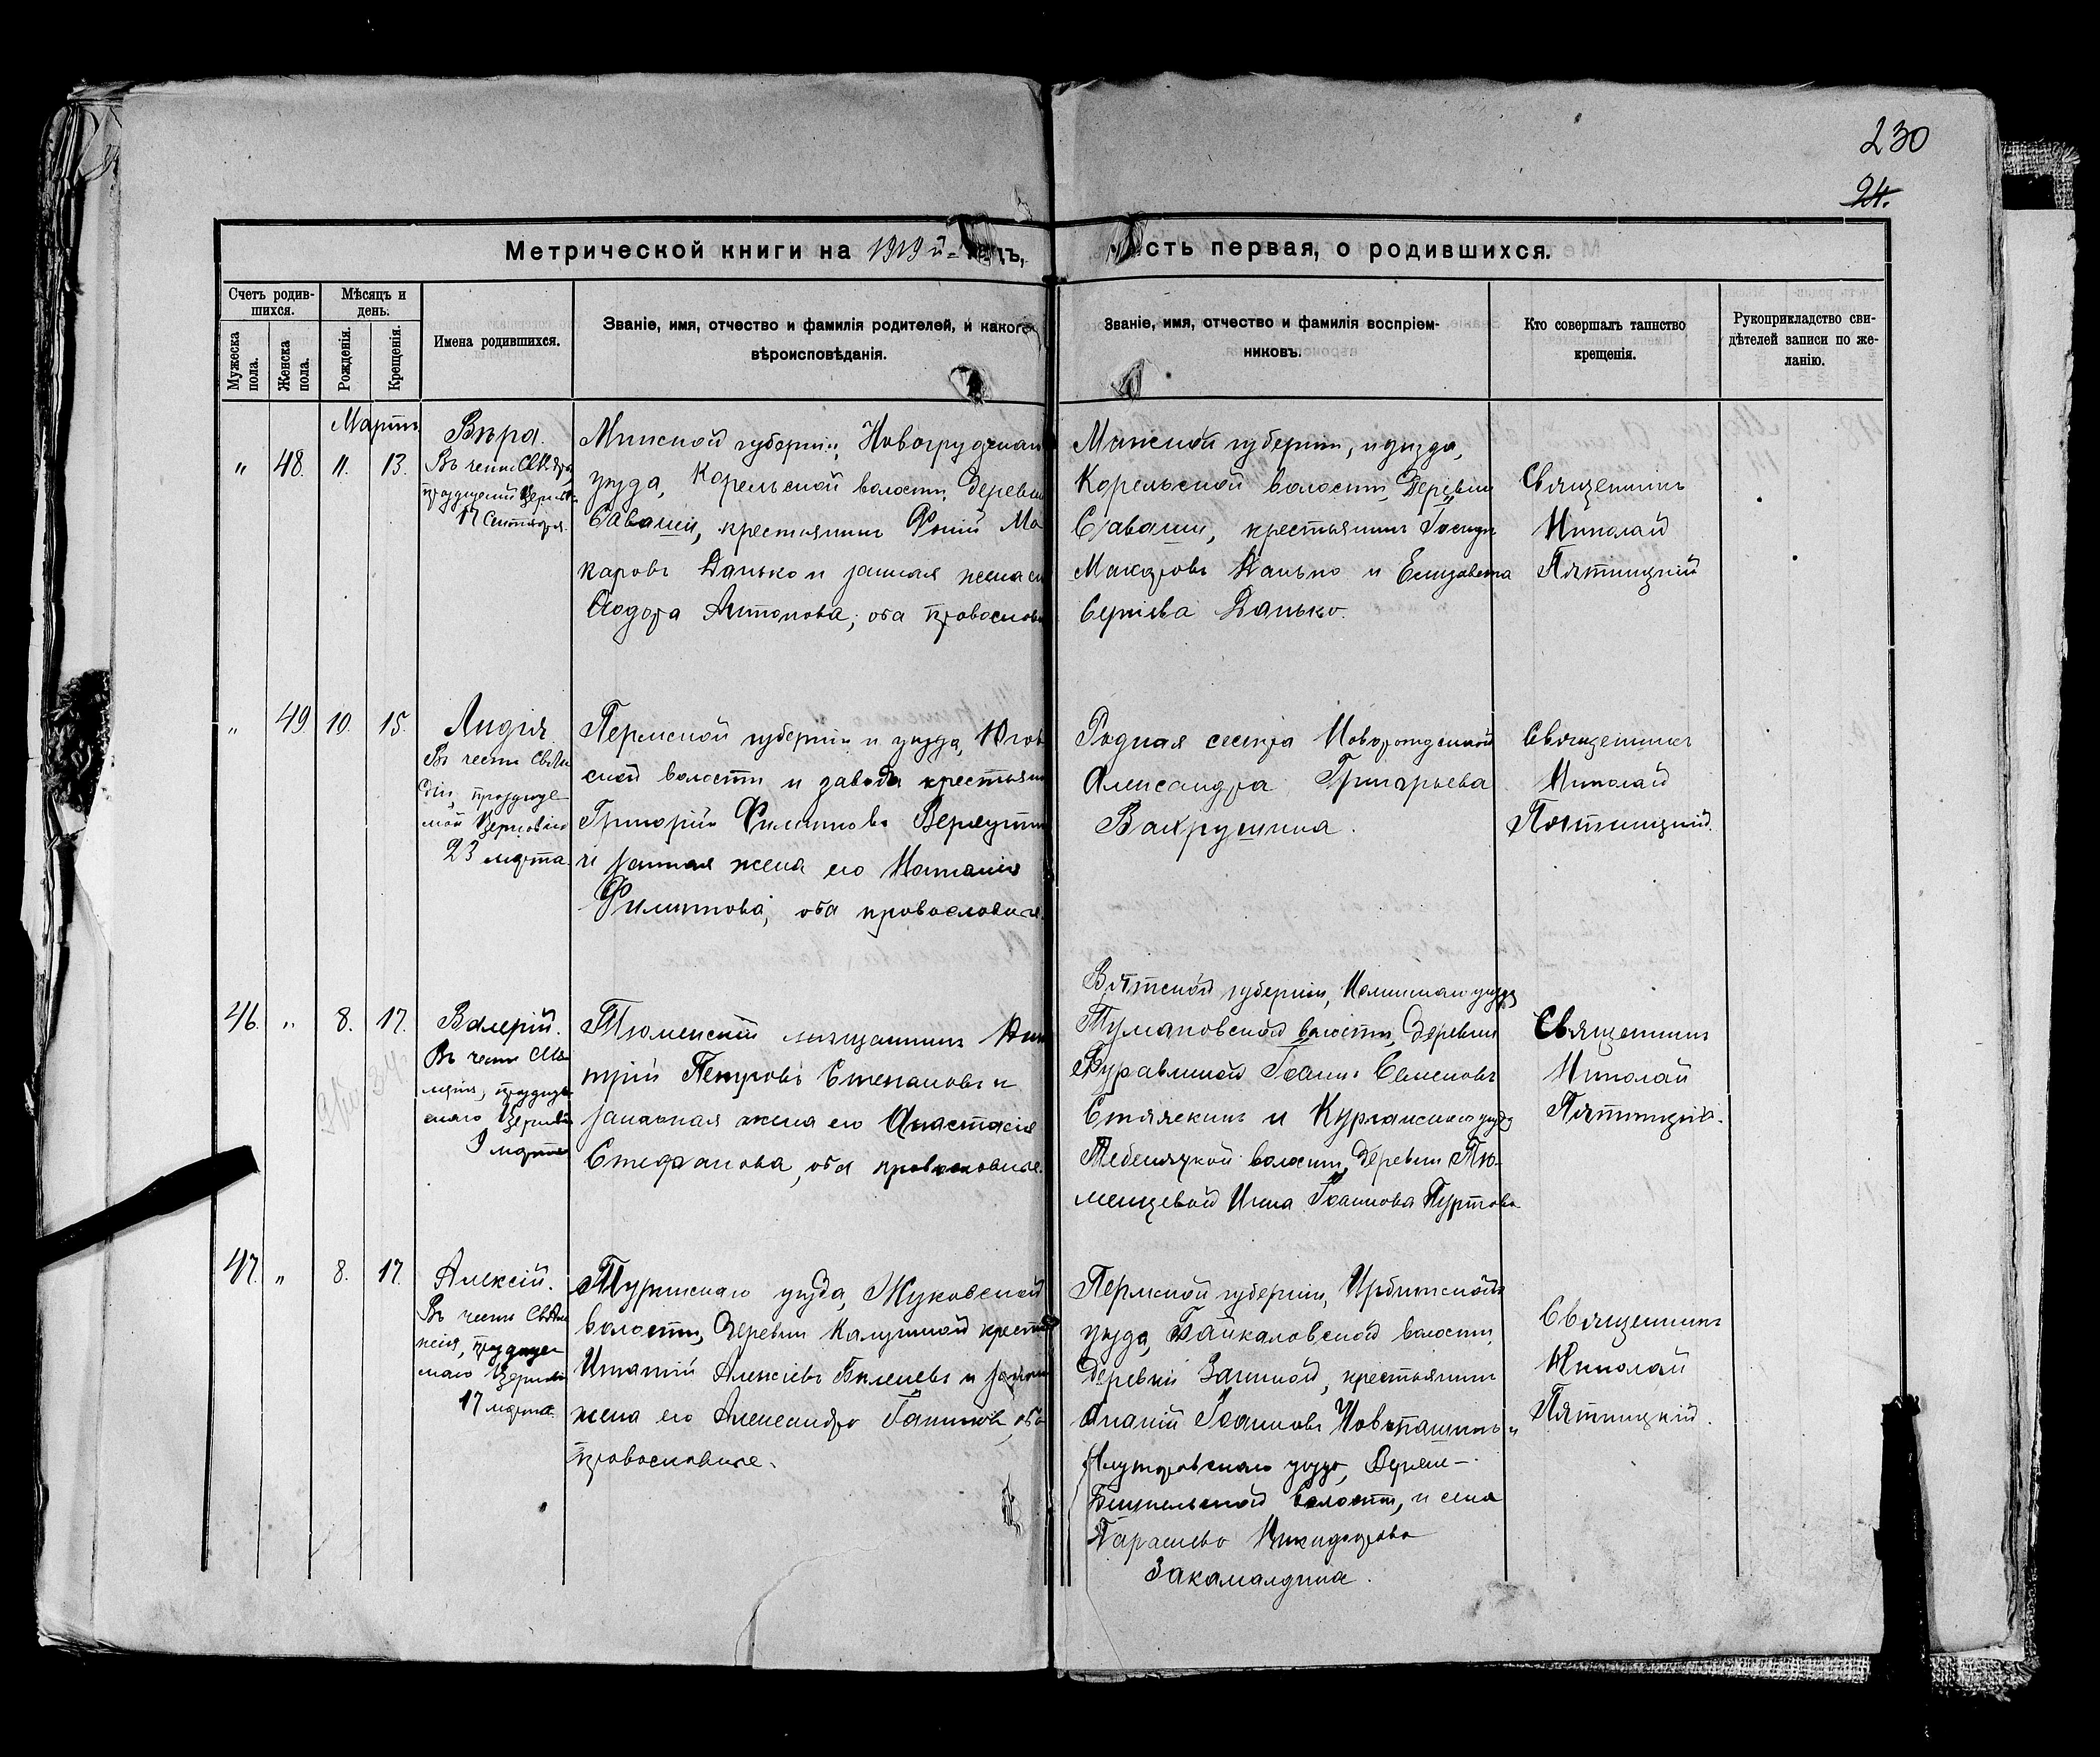 230
24.
Метрической книги на 1919й
сть первая, о родившихся.
Счетъ родив-
шихся.
Мѣсяцъ и
день.
Мужеска
пола.
Женска
пола.
Рожденія.
Крещенія.
Имена родившихся.
Званіе, имя, отчество и фамилія родителей, и какого
вѣроисповѣданія.
Званіе, имя, отчество и фамилія воспріем-
никовъ.
Кто совершалъ таинство
крещенія.
Рукоприкладство сви-
дѣтелей записи по же-
ланію.
Мартъ
" 48. 11. 13.
Вѣра.
Въ честь
празднуемой Церков
17 Сентября.
Минской губерніи, Новогрудскаго
уѣзда, Корельской волости, деревни
Саваши, крестьянинъ Ма
каровъ Данько и законная жена его
Антонова, оба православн
Минской губерніи, и уѣзда,
Корельской волости, деревни
Саваши, крестьянинъ
Макаровъ Данько и Елизавета
Сергіева Данько.
Священникъ
Николай
Пятницкій
" 49 10. 15.
Лидія.
Въ честь Св Ли
діи, празднуе
мой Церковію
23 марта.
Пермской губерніи и уѣзда, Югов
ской волости и завода крестьянин
Григорій Филипповъ
и законная жена его Наталія
Филиппова, оба православные.
Родная сестра Новорожденной
Александра Григорьева
Вахрушина.
Священникъ
Николай
Пятницкій.
46. " 8. 17.
Валерій.
Въ честь Св Ва
лерія, празднуе
маго Церковію
9 марта
Тюменскій мѣщанинъ Дми
трій Петровъ Степановъ и
законная жена его Анастасія
Стефанова, оба православные.
Вятской губерніи, уѣзда
Тумановской волости, деревни
Журавлиной Іоаннъ Семеновъ
Стяжкинъ и Курганскаго уѣзда
Тебенякской волости, деревни Тю-
менцевой Нина Іоаннова Пуртова
Священникъ
Николай
Пятницкій.
47. " 8. 17.
Алексій.
Въ честь Св Але
ксія, празднуе
маго Церковію
17 марта.
Туринскаго уѣзда, Жуковской
волости, деревни Калугиной крест
Игнатій Алексіевъ и законн
жена его Александра оба
православные.
Пермской губерніи, Ирбитскаго
уѣзда, Байкаловской волости,
деревни крестьянинъ
Ананій Іоанновъ и
Ялуторовскаго уѣзда, Верхне-
Бешкильской волости, и села
Никифорова
Закамалдина.
Священникъ
Николай
Пятницкій.